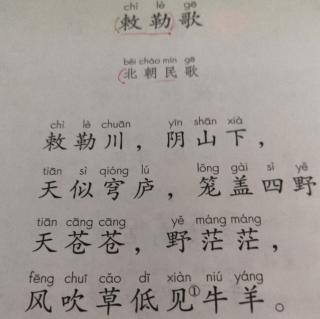 chì lè gē
敕勒歌
běi cháo mín gē
北朝民歌
chì lè chuān yīn shān xià
敕勒川，阴山下，
tiān sì qióng lú lǒng gài sì yě
天似穹庐，笼盖四野
tiān cāng cāng yě máng máng
天苍苍，野茫茫，
fēng chuī cǎo dī xiàn niú yáng
风吹草低见①牛羊。